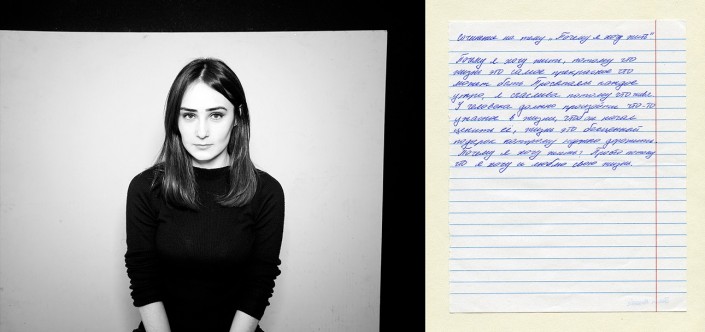 Сочинение на тему „Почему я хочу жить“
Почему я хочу жить, потому что
жизнь это самое прекрасное что
может быть. Просыпаясь каждое
утро, я счастлива потому что жива.
У человека должно произойти что-то
ужасное в жизни, чтоб он начал
ценить ее, жизнь это бесценный
подарок которому нужно дорожить.
Почему я хочу жить? Просто потому
что я хочу и люблю свою жизнь.